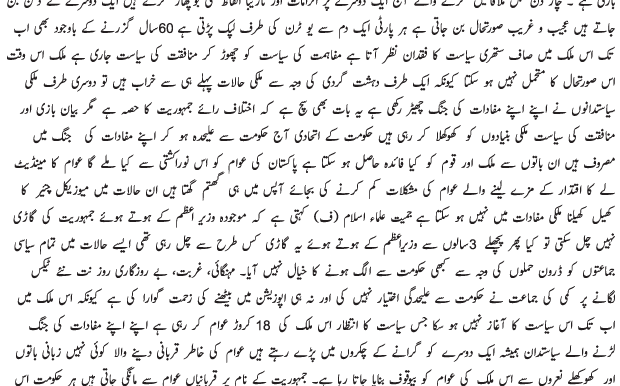 جاتے ہیں عجیب و غریب صورتحال بن جاتی ہے ہر پارٹی ایک دم سے یو ٹرن کی طرف لپک پڑتی ہے 60سال گزرنے کے باوجود بھی اب
تک اس ملک میں صاف ستھری سیاست کا فقدان نظر آتا ہے مفاہمت کی سیاست کو چھوڑ کر منافقت کی سیاست جاری ہے ملک اس وقت
اس صورتحال کا متحمل نہیں ہو سکتا کیونکہ ایک طرف دہشت گردی کی وجہ سے ملکی حالات پہلے ہی سے خراب ہیں تو دوسری طرف ملکی
سیاستدانوں نے اپنے اپنے مفادات کی جنگ چھیڑ رکھی ہے یہ بات بھی سچ ہے کہ اختلاف رائے جمہوریت کا حصہ ہے مگر بیان بازی اور
منافقت کی سیاست ملکی بنیادوں کو کھوکھلا کر رہی ہیں حکومت کے اتحادی آج حکومت سے علیحدہ ہو کر اپنے مفادات کی جنگ میں
مصروف ہیں ان باتوں سے ملک اور قوم کو کیا فائدہ حاصل ہو سکتا ہے پاکستان کی عوام کو اس نوراکشتی سے کیا ملے گا عوام کا مینڈیٹ
لے کا اقتدار کے مزے لینے والے عوام کی مشکلات کم کرنے کی بجائے آپس میں ہی گتھم گتھا ہیں ان حالات میں میوزیکل چئیر کا
کھیل کھیلنا ملکی مفادات میں نہیں ہو سکتا ہے جمیت علماء اسلام (ف) کہتی ہے کہ موجودہ وزیر اعظم کے ہوتے ہوئے جمہوریت کی گاڑی
نہیں چل سکتی تو کیا پھر پچھلے 3سالوں سے وزیراعظم کے ہوتے ہوئے یہ گاڑی کس طرح سے چل رہی تھی ایسے حالات میں تمام سیاسی
جماعتوں کو ڈرون حملوں کی وجہ سے کبھی حکومت سے الگ ہونے کا خیال نہیں آیا۔ مہنگائی، غربت، بے روزگاری روز نت نئے ٹیکس
لگانے پر کسی کی جماعت نے حکومت سے علیحدگی اختیار نہیں کی اور نہ ہی اپوزیشن میں بیٹھنے کی زحمت گوارا کی ہے کیونکہ اس ملک میں
اب تک اس سیاست کا آغاز نہیں ہو سکا جس سیاست کا انتظار اس ملک کی 18 کروڑ عوام کر رہی ہے اپنے اپنے مفادات کی جنگ
لڑنے والے سیاستدان ہمیشہ ایک دوسرے کو گرانے کے چکروں میں پڑے رہتے ہیں عوام کی خاطر قربانی دینے والا کوئی نہیں زبانی باتوں
اور کھوکھلے نعروں سے اس ملک کی عوام کو بیوقوف بنایا جاتا رہا ہے۔ جمہوریت کے نام پر قربانیاں عوام سے مانگی جاتی ہیں ہر حکومت اس